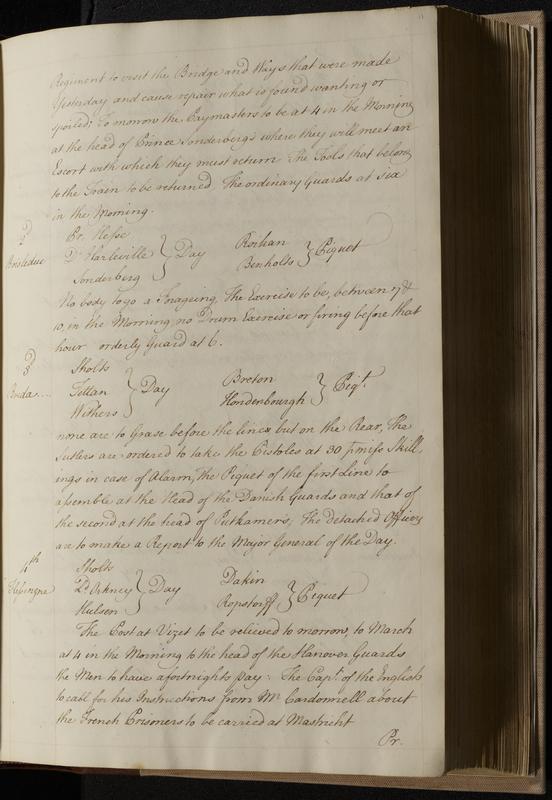 Regiment to visit the Bridge and Ways that were made
Yesterday and cause repair what is found wanting or
spoiled; To morrow the Paymasters to be at 4 in the Morning
at the head of Prince Sonderbergs where they will meet an
Escort with which they must return The Tools that belong
to the Train to be returned The ordinary Guards at six
in the Morning.
2d
Pr. Hesse
Harleville } Day
Sonderberg
Rohan
Benholts } Piquet
No body to go a Forageing, The Exercise to be, between 7 &
10, in the Morning, no Drum Exercise or firing before that
hour orderly Guard at 6.
3d
Breda...
Sholts
Tettau } Day
Withers
Breton
Honderbourgh } Piqt.
none are to Grase before the lines but on the Rear, The
Sutlers are ordered to take the Pistoles at 30 Skill,
ings in case of Alarm, the Piquet of the first Line to
assemble at the Head of the Danish Guards and that of
the second at the head of Putkamers, The detached Officers
are to make a Report to the Major General of the Day.
4th
Sholts
Ld. Orkney } Day
Hulsen
Dakin
Ropstorff } Piquet
The Post at Vizet to be relieved to morrow, to March
at 4 in the Morning to the head of the Hanover Guards
the Men to have a fortnights pay: The Capt. of the English
to call for his Instructions from Mr. Cardonnell about
the French Prisoners to be carried at Mastricht
Pr.